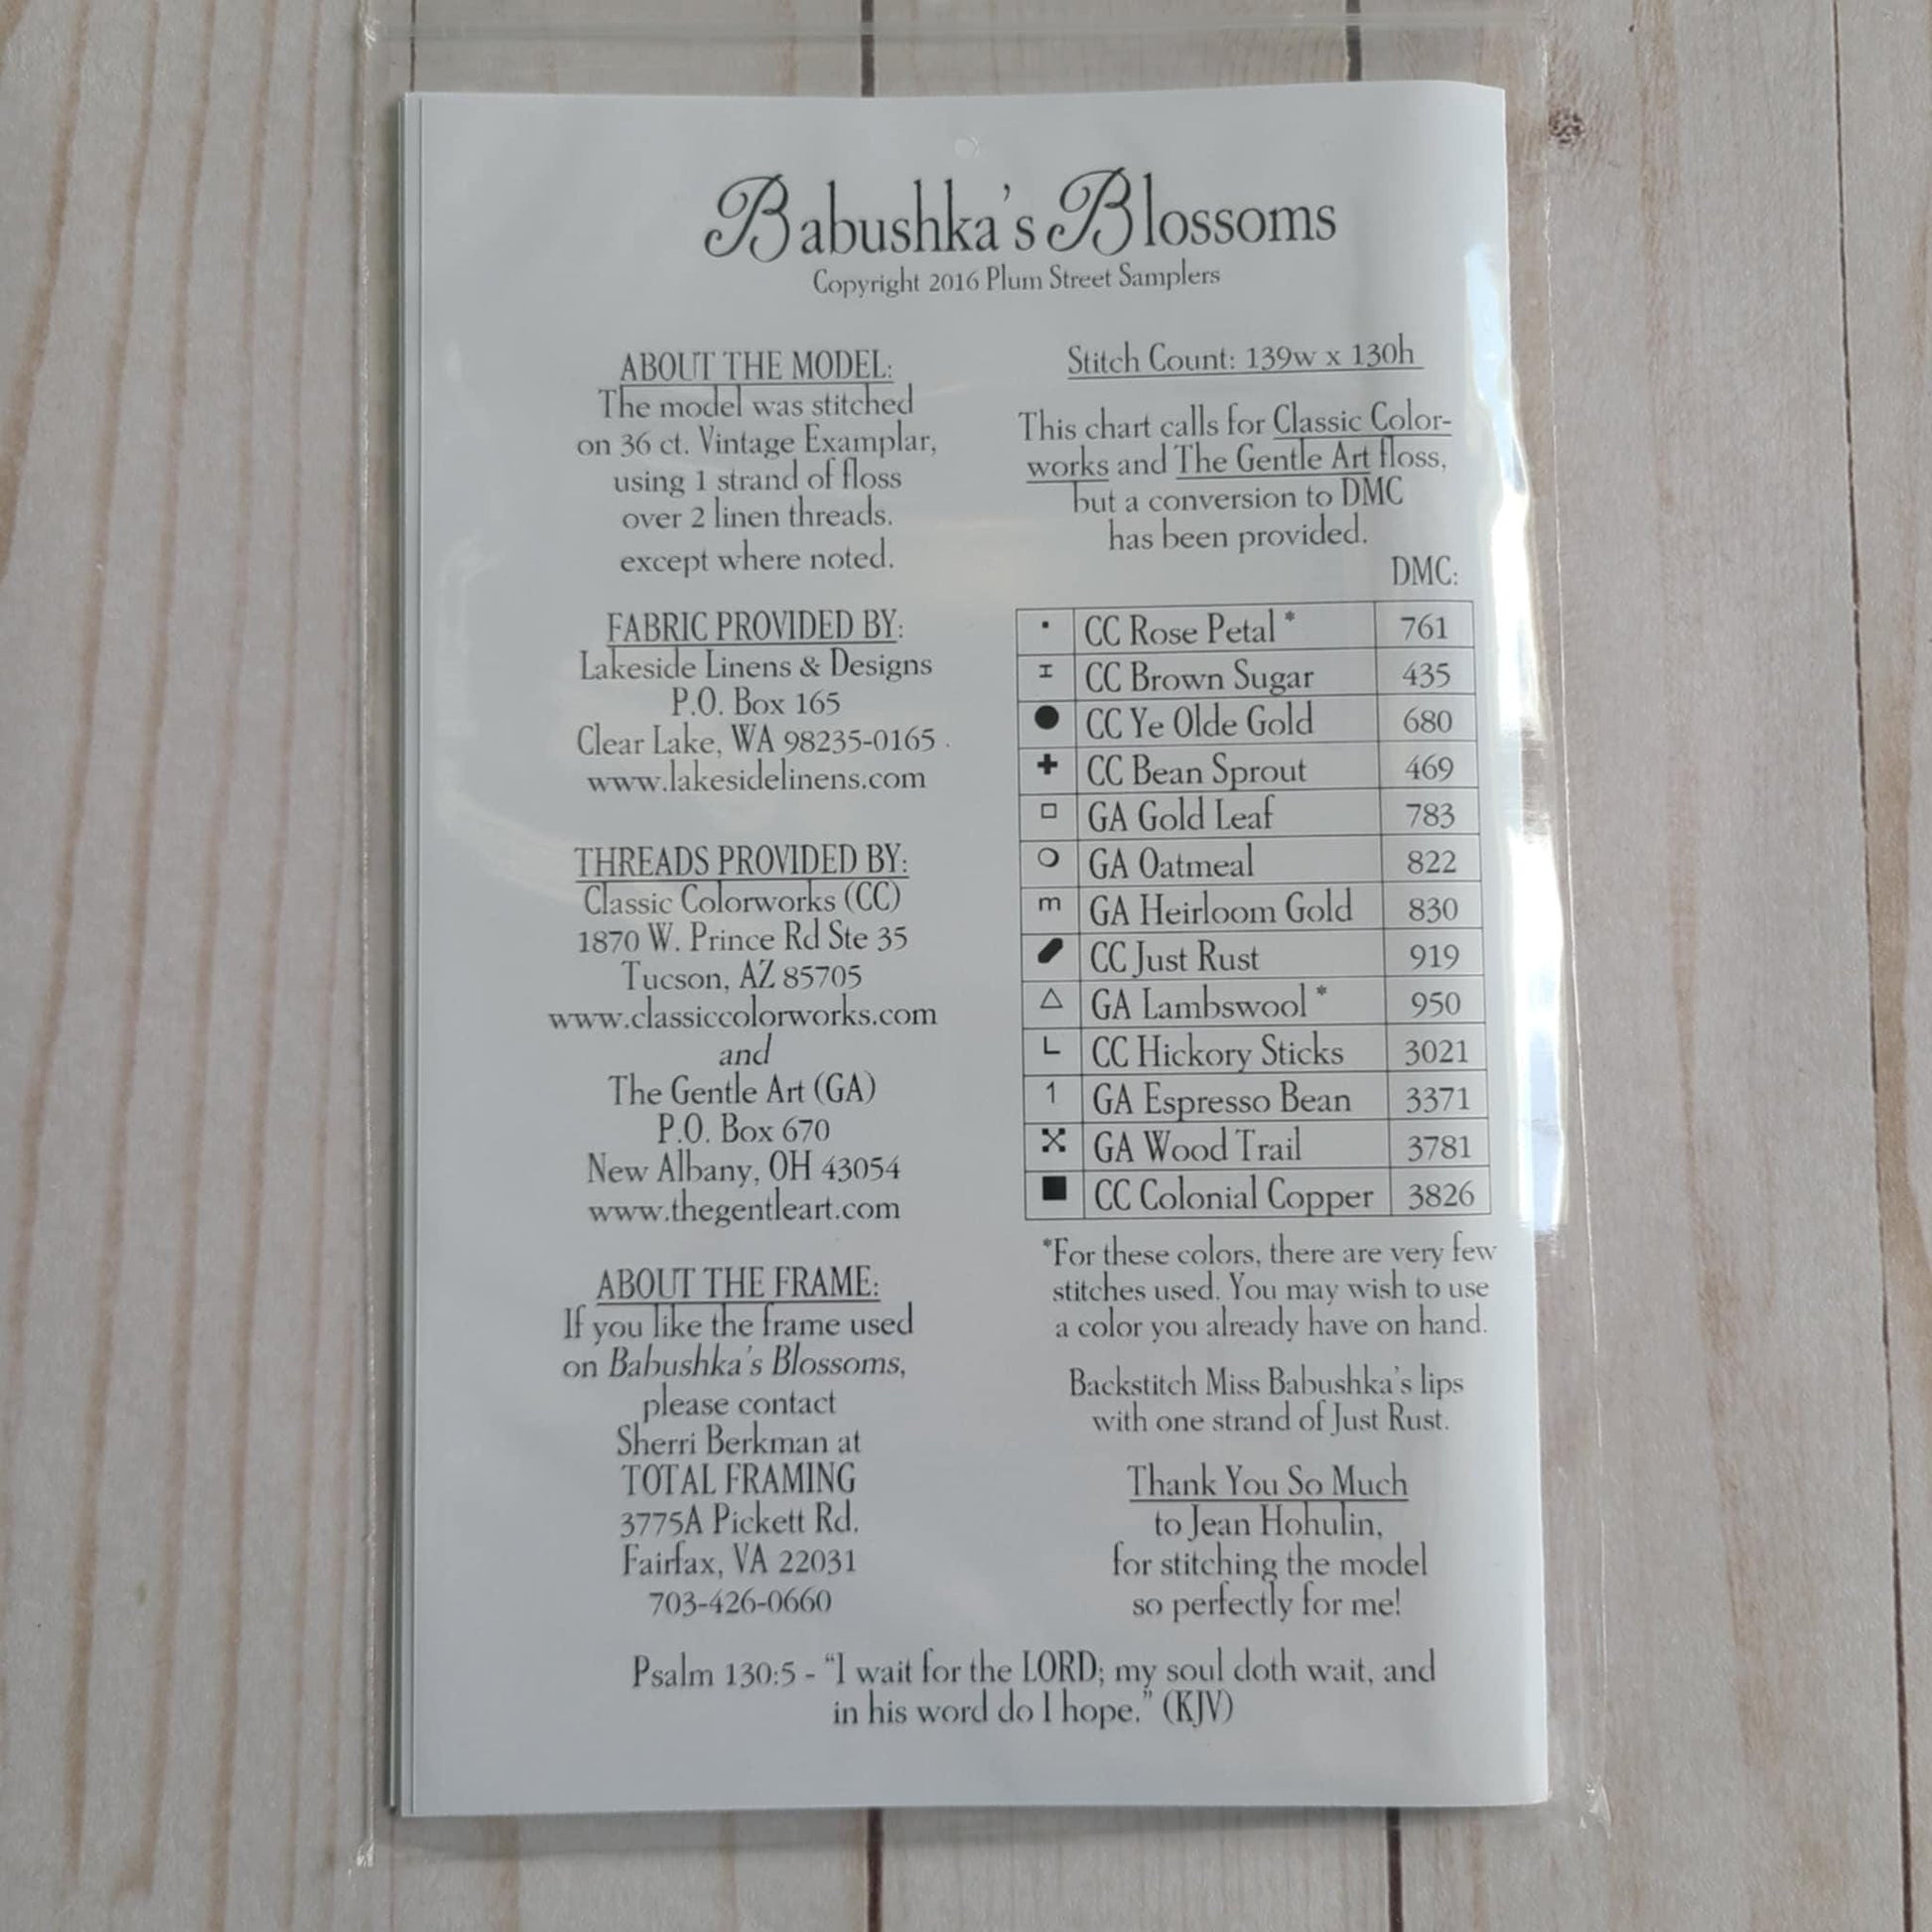 Babushka's Blossoms
Copyright 2016 Plum Street Samplers
ABOUT THE MODEL:
The model was stitched
on 36 ct. Vintage Examplar,
using 1 strand of floss
over 2 linen threads.
except where noted.
FABRIC PROVIDED BY:
Lakeside Linens & Designs
P.O. Box 165
Clear Lake, WA 98235-0165 .
www.lakesidelinens.com
THREADS PROVIDED BY:
Classic Colorworks (CC)
1870 W. Prince Rd Ste 35
Tucson, AZ 85705
www.classiccolorworks.com
and
The Gentle Art (GA)
P.O. Box 670
New Albany, OH 43054
www.thegentleart.com
ABOUT THE FRAME:
If you like the frame used
on Babushka's Blossoms,
please contact
Sherri Berkman at
TOTAL FRAMING
3775A Pickett Rd.
Fairfax, VA 22031
703-426-0660
Stitch Count: 139w x 130h
This chart calls for Classic Color-
works and The Gentle Art floss,
but a conversion to DMC
has been provided.
DMC:
· CC Rose Petal * 761
I CC Brown Sugar 435
● CC Ye Olde Gold 680
✚ CC Bean Sprout 469
□ GA Gold Leaf 783
○ GA Oatmeal 822
m GA Heirloom Gold 830
CC Just Rust 919
△ GA Lambswool * 950
L CC Hickory Sticks 3021
1 GA Espresso Bean 3371
GA Wood Trail 3781
■ CC Colonial Copper 3826
*For these colors, there are very few
stitches used. You may wish to use
a color you already have on hand.
Backstitch Miss Babushka's lips
with one strand of Just Rust.
Thank You So Much
to Jean Hohulin,
for stitching the model
so perfectly for me!
Psalm 130:5 - "I wait for the LORD; my soul doth wait, and
in his word do I hope." (KJV)